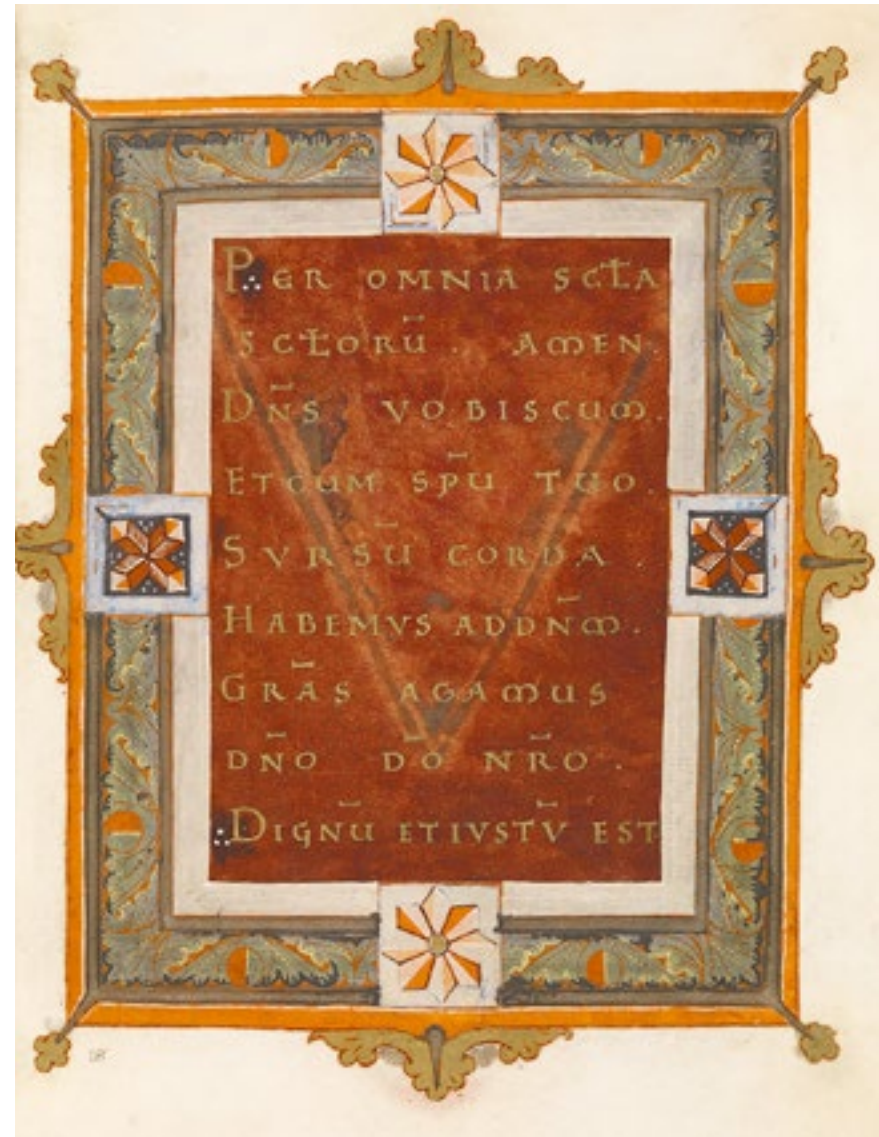 PER OMNIA SCLA
SCLORŪ. AMEN.
DN̄S VOBISCUM.
ETCUM SPŪ TUO.
SVRSŪ CORDA
HABEMVS ADDN̄M.
GRĀS AGAMUS
DN̄O D̄O NR̄O.
DIGNŪ ETIVSTV̄ EST